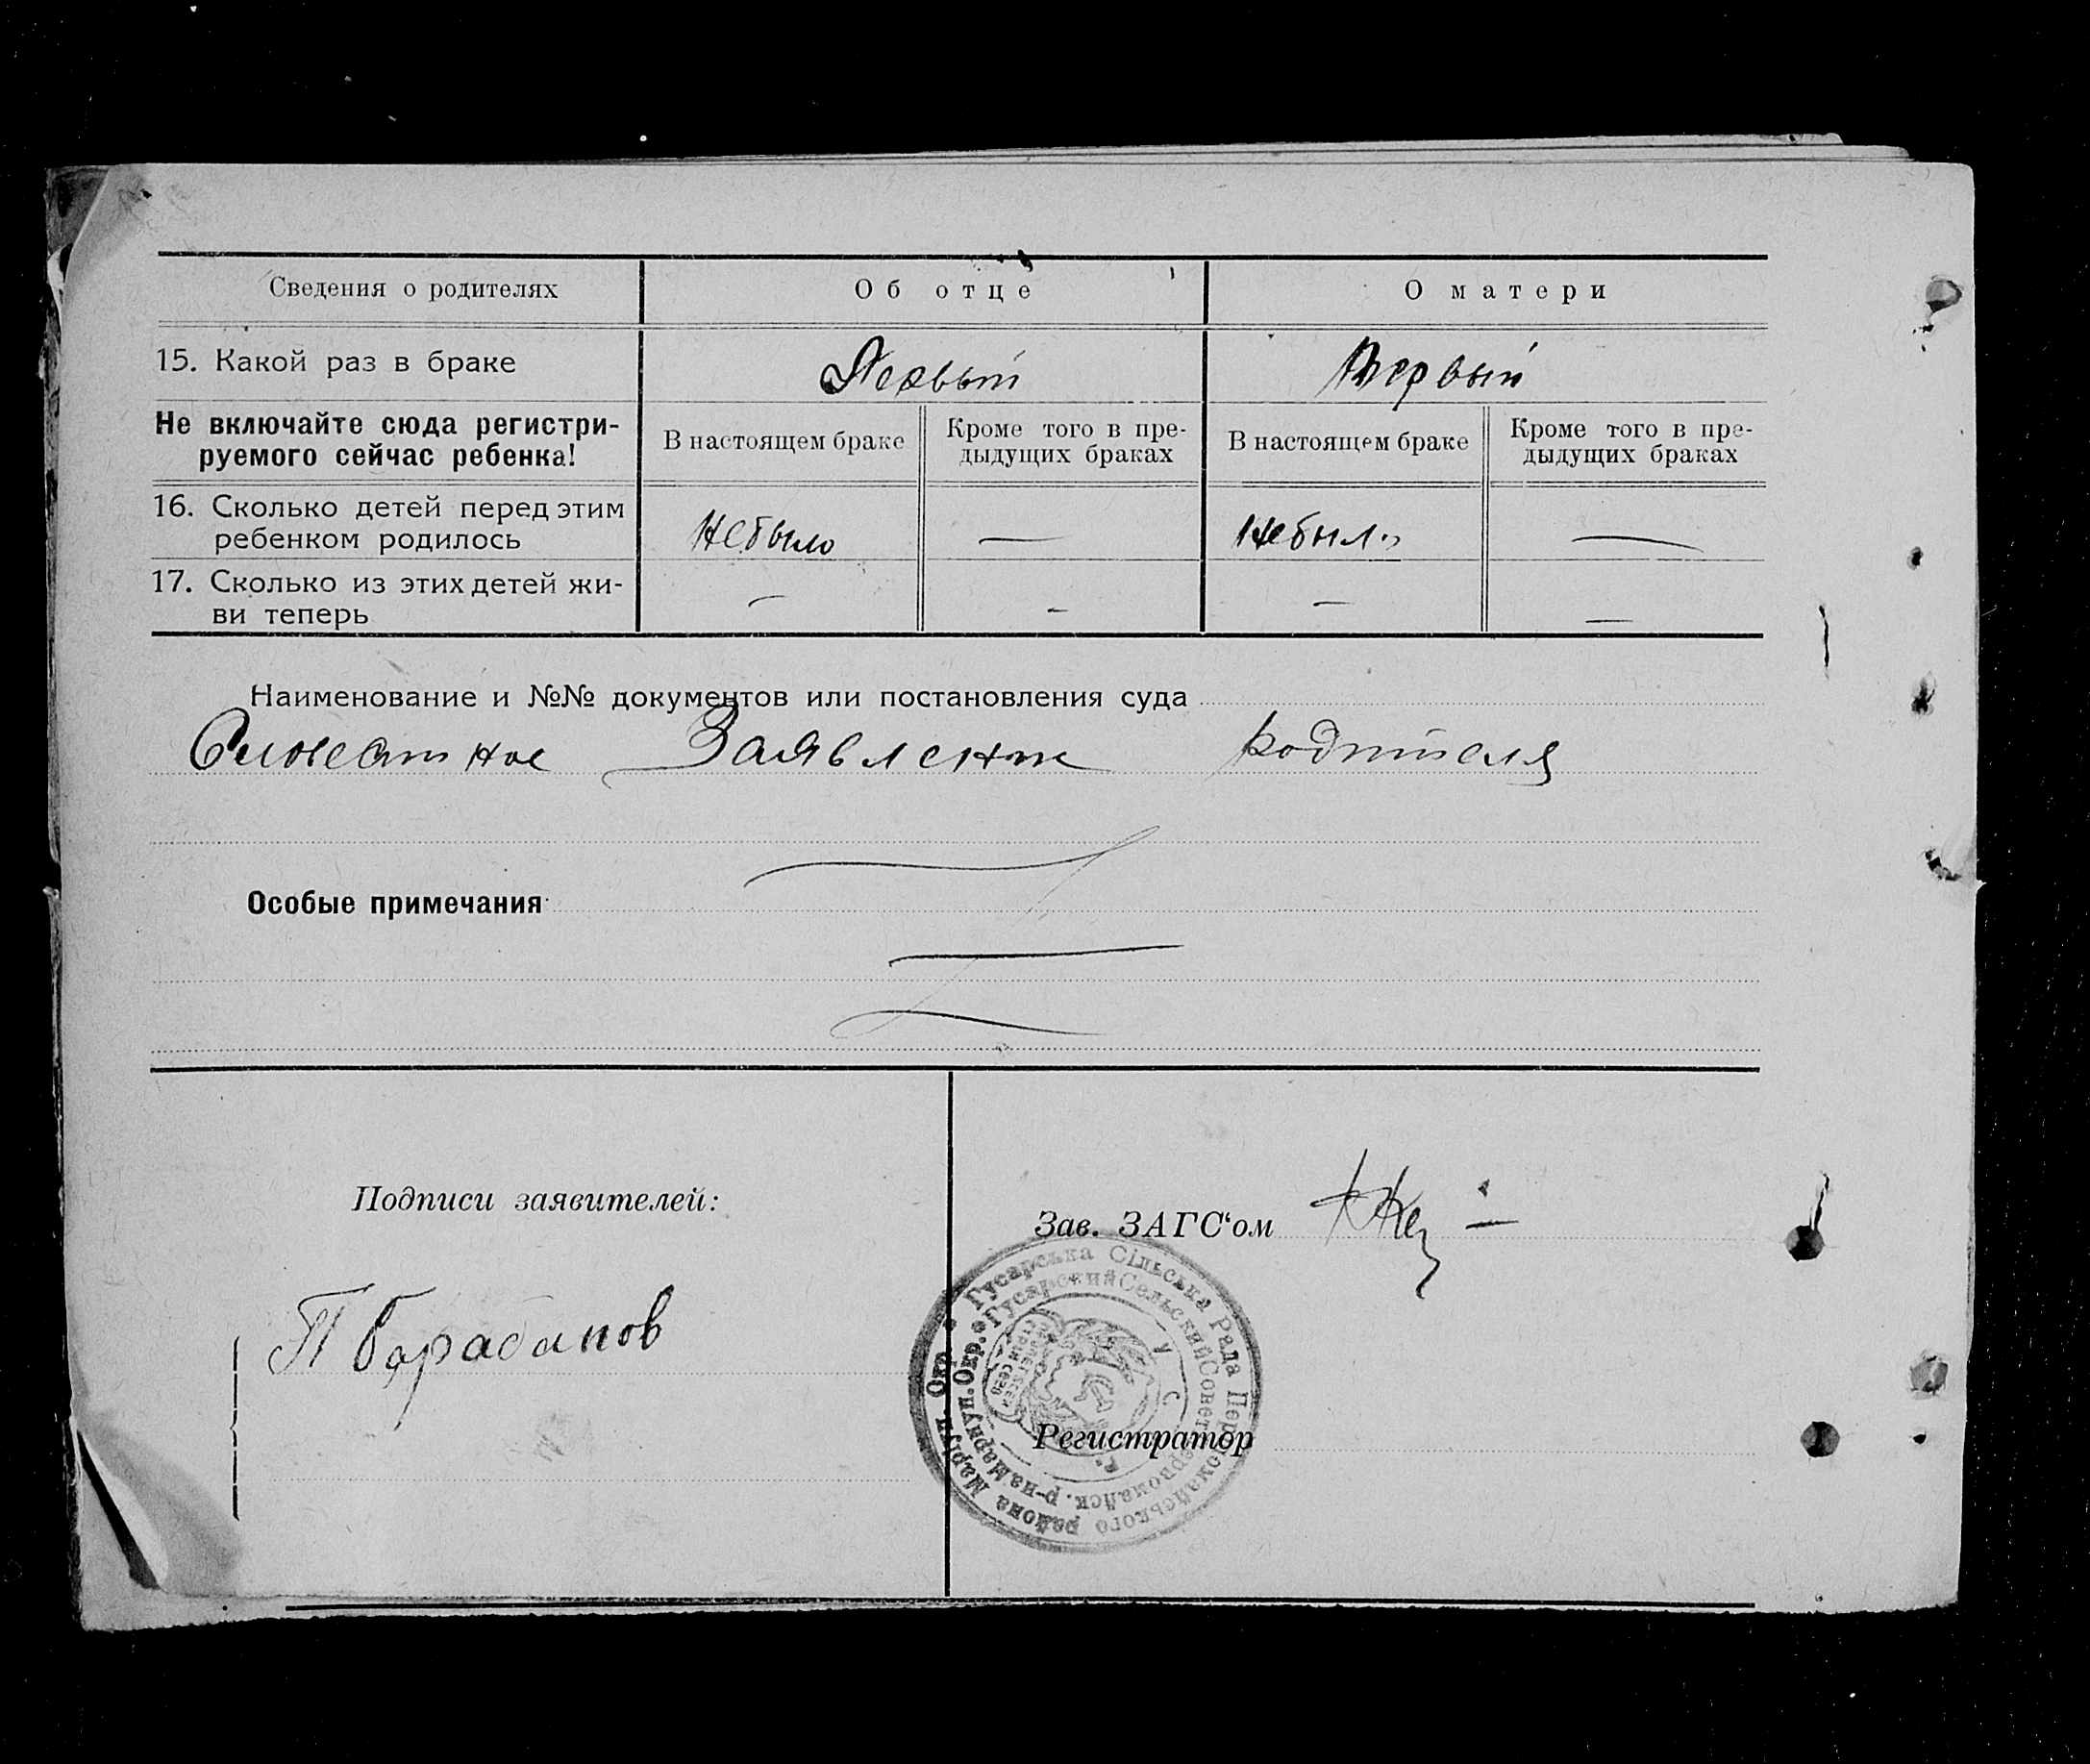 Сведения о родителях
Об отце
О матери
15. Какой раз в браке
Первый
Первый
Не включайте сюда регистри-
руемого сейчас ребенка!
В настоящем браке
Кроме того в пре-
дыдущих браках
В настоящем браке
Кроме того в пре-
дыдущих браках
16. Сколько детей перед этим
ребенком родилось
Небыло
—
Небыло
—
17. Сколько из этих детей жи-
ви теперь
—
—
—
—
Наименование и №№ документов или постановления суда
Заявление родителя
Особые примечания
Подписи заявителей:
П Барабанов
Зав. ЗАГС‘ом
Регистратор
Гусарська Сільська Рада Первомайського района Маріуп. Окр
Гусарский Сельский Совет Первомайск. р-на Мариуп. Окр.
У С